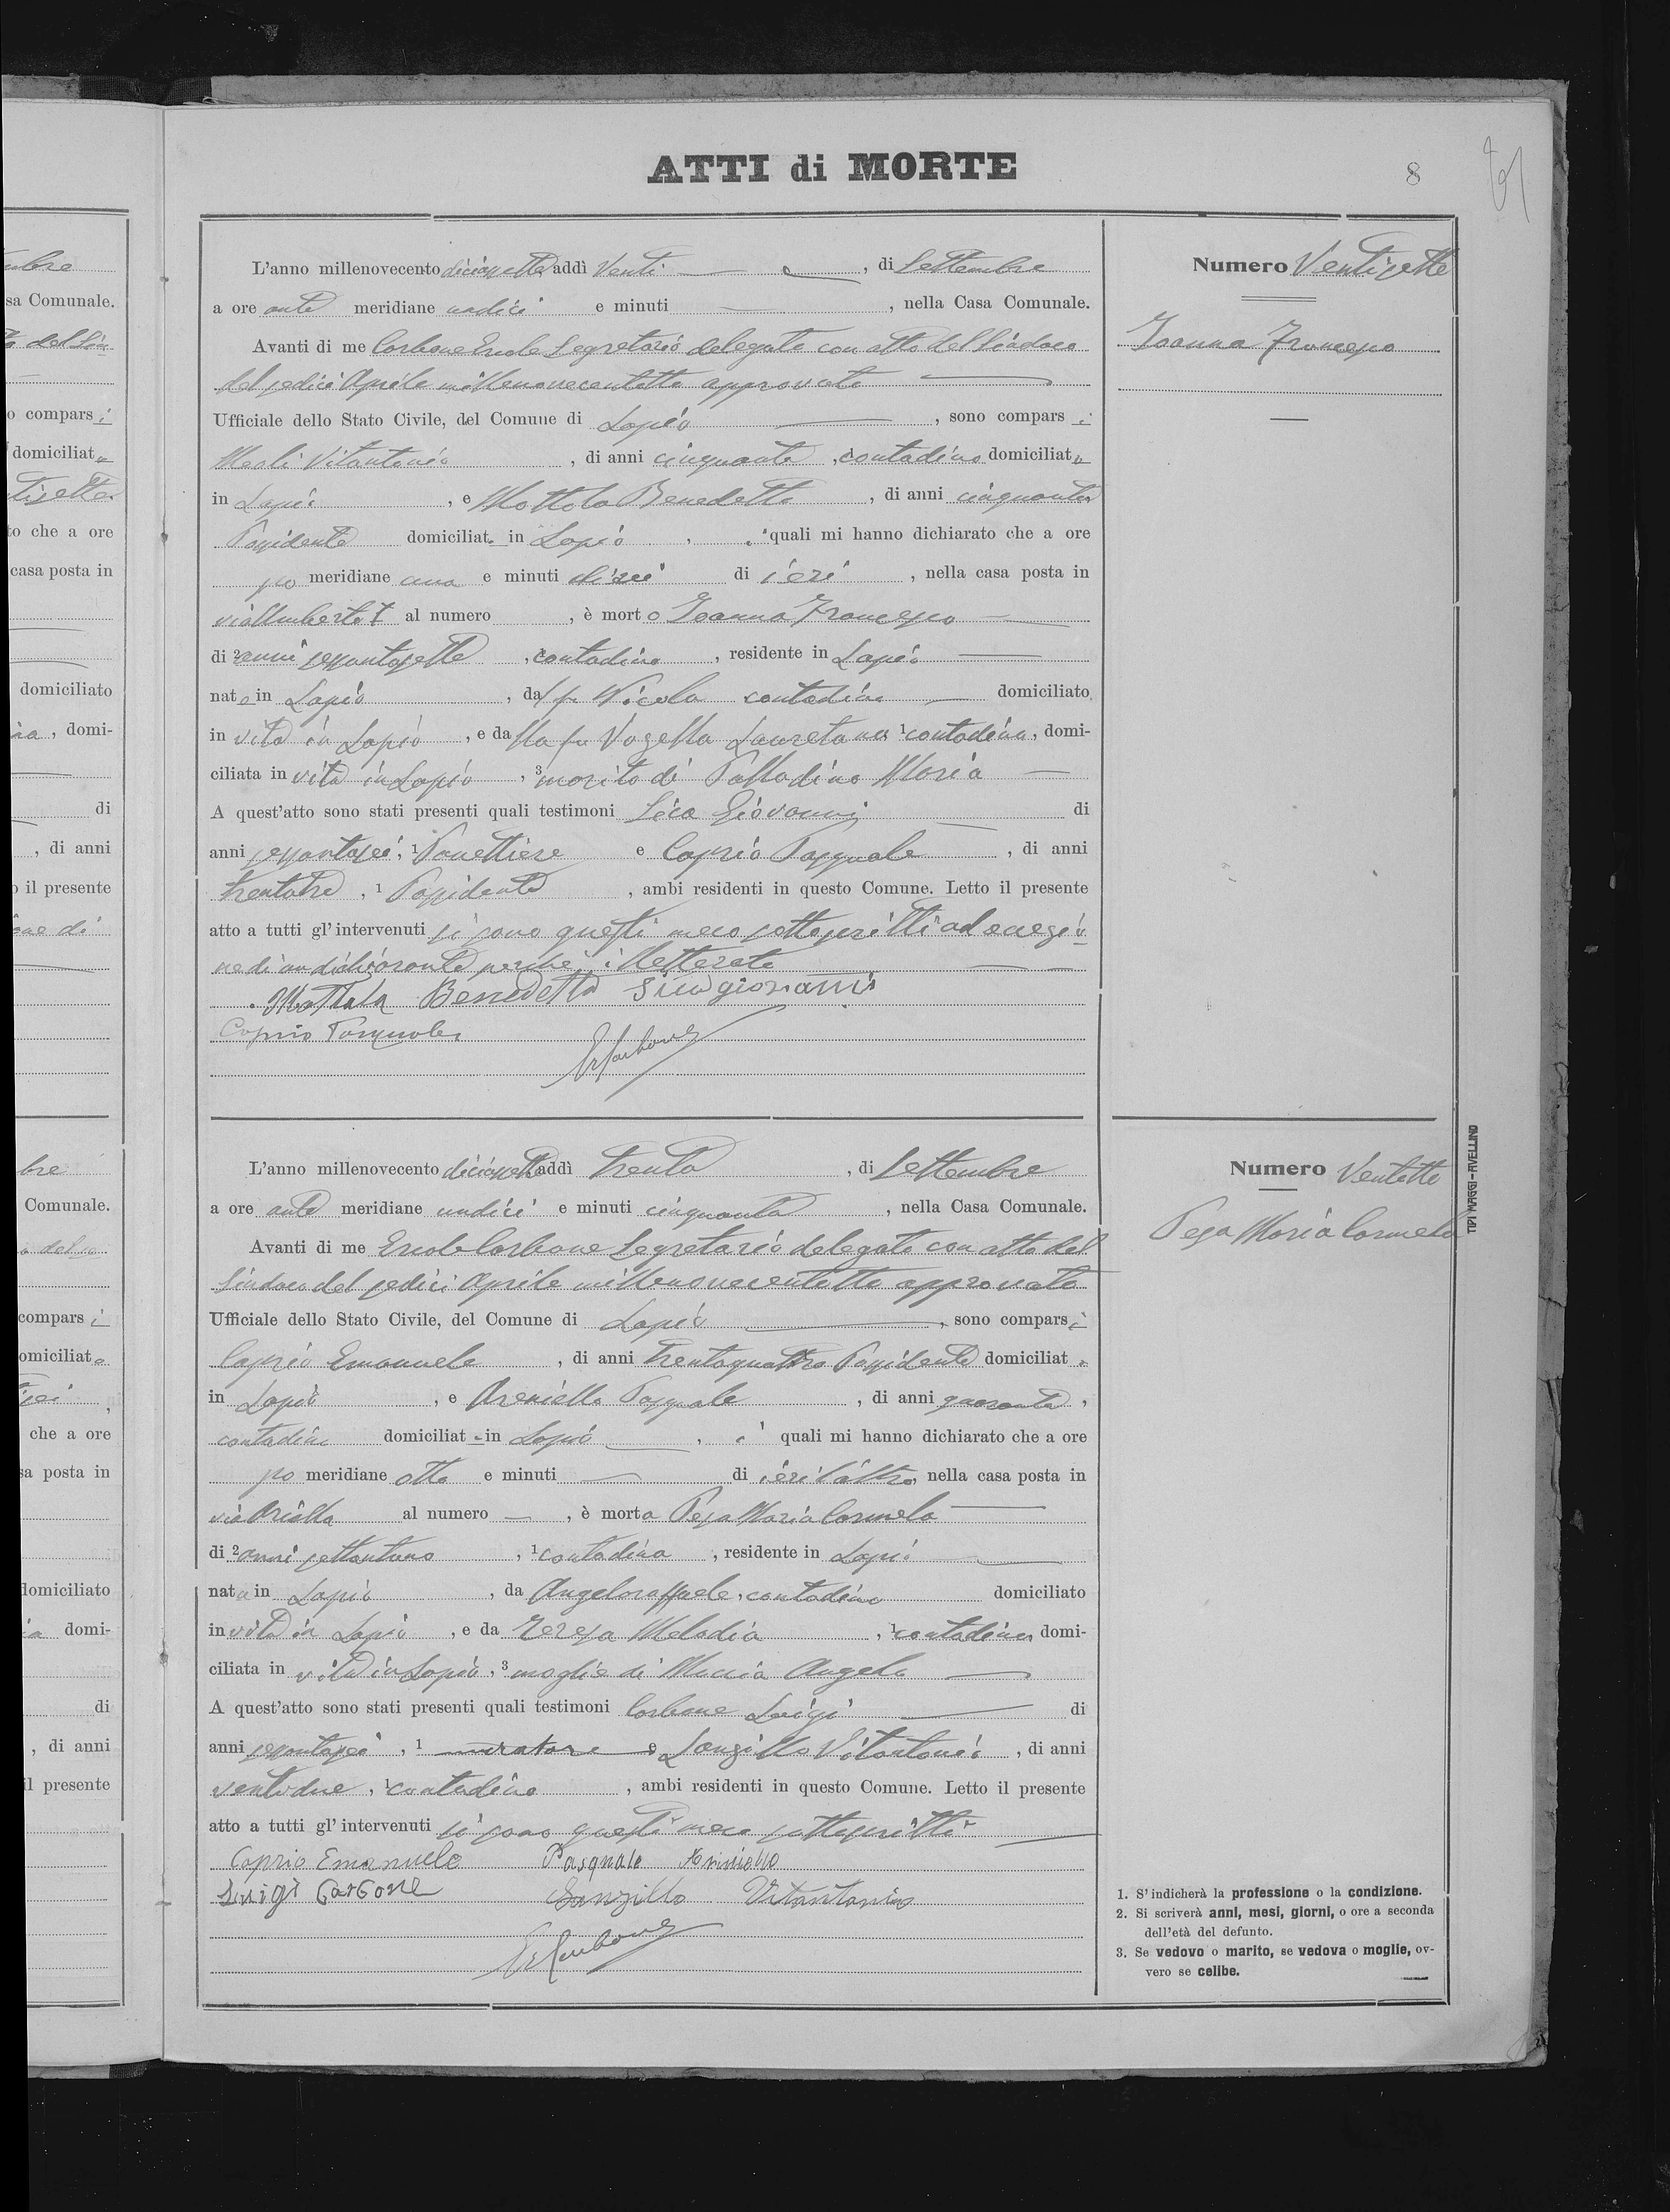 ATTI di MORTE
8
L'anno millenovecento diciassette addì Venti, di Settembre
a ore ante meridiane undici e minuti, nella Casa Comunale.
Avanti di me Carbone Ercole Segretario delegato con atto del Sindaco
del sedici Aprile millenovecentotto approvato
Ufficiale dello Stato Civile, del Comune di Lapio, sono compars i
Meoli Vitantonio, di anni cinquanta, contadino domiciliato
in Lapio, e Mottola Benedetto, di anni cinquanta
Possidente domiciliato in Lapio, i quali mi hanno dichiarato che a ore
po meridiane una e minuti dieci di ieri, nella casa posta in
via Umberto I al numero, è morto Ioanna Francesco
di 2 anni sessantasette, contadino, residente in Lapio
nato in Lapio, dal fu Nicola contadino domiciliato
in vita in Lapio, e da lla fu Vozella Lauretana 1 contadina, domi-
ciliata in vita in Lapio, 3 marito di Palladino Maria
A quest'atto sono stati presenti quali testimoni Sica Giovanni di
anni sessantasei, 1 Panettiere e Caprio Pasquale, di anni
trentatre, 1 Possidente, ambi residenti in questo Comune. Letto il presente
atto a tutti gl'intervenuti si sono questi meco sottoscritti ad eccezio
ne di un dichiarante perchè illetterato
Mottola Benedetto Sica giovanni
Caprio Pasquale
E Carbone
Numero Ventisette
Ioanna Francesco
L'anno millenovecento diciassette addì trenta, di Settembre
a ore ante meridiane undici e minuti cinquanta, nella Casa Comunale.
Avanti di me Ercole Carbone Segretario delegato con atto del
Sindaco del sedici Aprile millenovecentotto approvato
Ufficiale dello Stato Civile, del Comune di Lapio, sono compars i
Caprio Emanuele, di anni trentaquattro Possidente domiciliato
in Lapio, e Areniello Pasquale, di anni quaranta,
contadino domiciliato in Lapio, i quali mi hanno dichiarato che a ore
po meridiane otto e minuti di ieri l'altro, nella casa posta in
via al numero, è morta Pesa Maria Carmela
di 2 anni settantuno, 1 contadina, residente in Lapio
nata in Lapio, da Angeloraffaele, contadino domiciliato
in vita in Lapio, e da Teresa Melodia, 1 contadina domi-
ciliata in vita in Lapio, 3 moglie di Angelo
A quest'atto sono stati presenti quali testimoni Carbone Luigi di
anni sessantasei, 1 muratore e Lanzillo Vitantonio, di anni
ventidue, 1 contadino, ambi residenti in questo Comune. Letto il presente
atto a tutti gl'intervenuti si sono questi meco sottoscritti
Caprio Emanuele Pasquale Areniello
Luigi Carbone Lanzillo Vitantonio
E Carbone
Numero Ventotto
Pesa Maria Carmela
TIPI MAGGI-AVELLINO
1. S'indicherà la professione o la condizione.
2. Si scriverà anni, mesi, giorni, o ore a seconda
dell'età del defunto.
3. Se vedovo o marito, se vedova o moglie, ov-
vero se celibe.